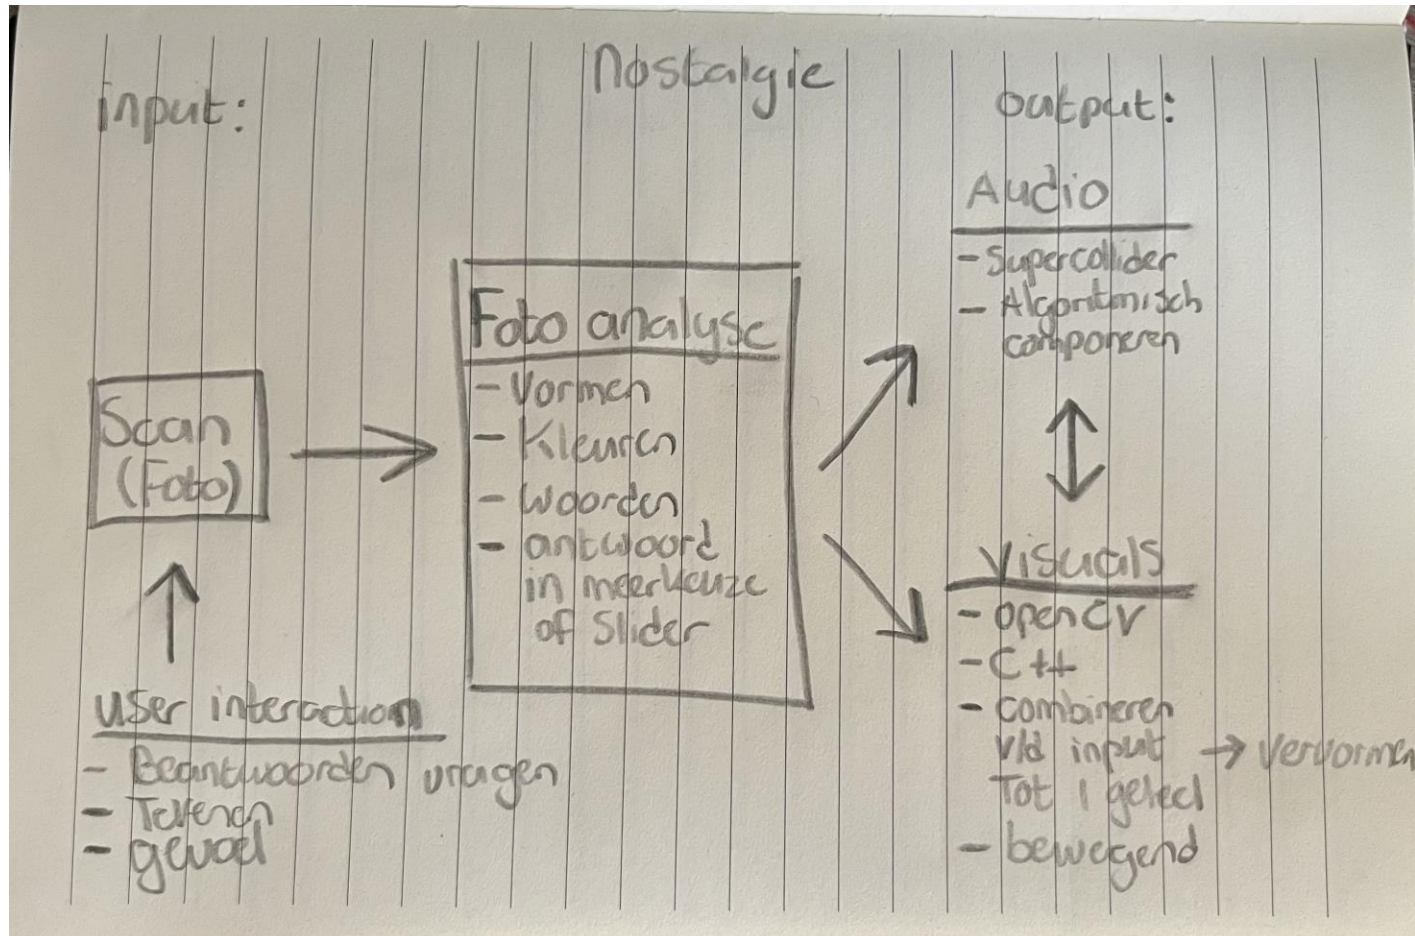 Nostalgie
input:
Scan
(Foto)
user interaction
- Beantwoorden vragen
- Tekenen
- gevoel
Foto analyse
- Vormen
- Kleuren
- woorden
- antwoord
in meerkeuze
of Slider
output:
Audio
- Supercollider
- Algoritmisch
componeren
Visuals
- openCV
- C++
- combineren
v/d input → vervormen
Tot 1 geheel
- bewegend